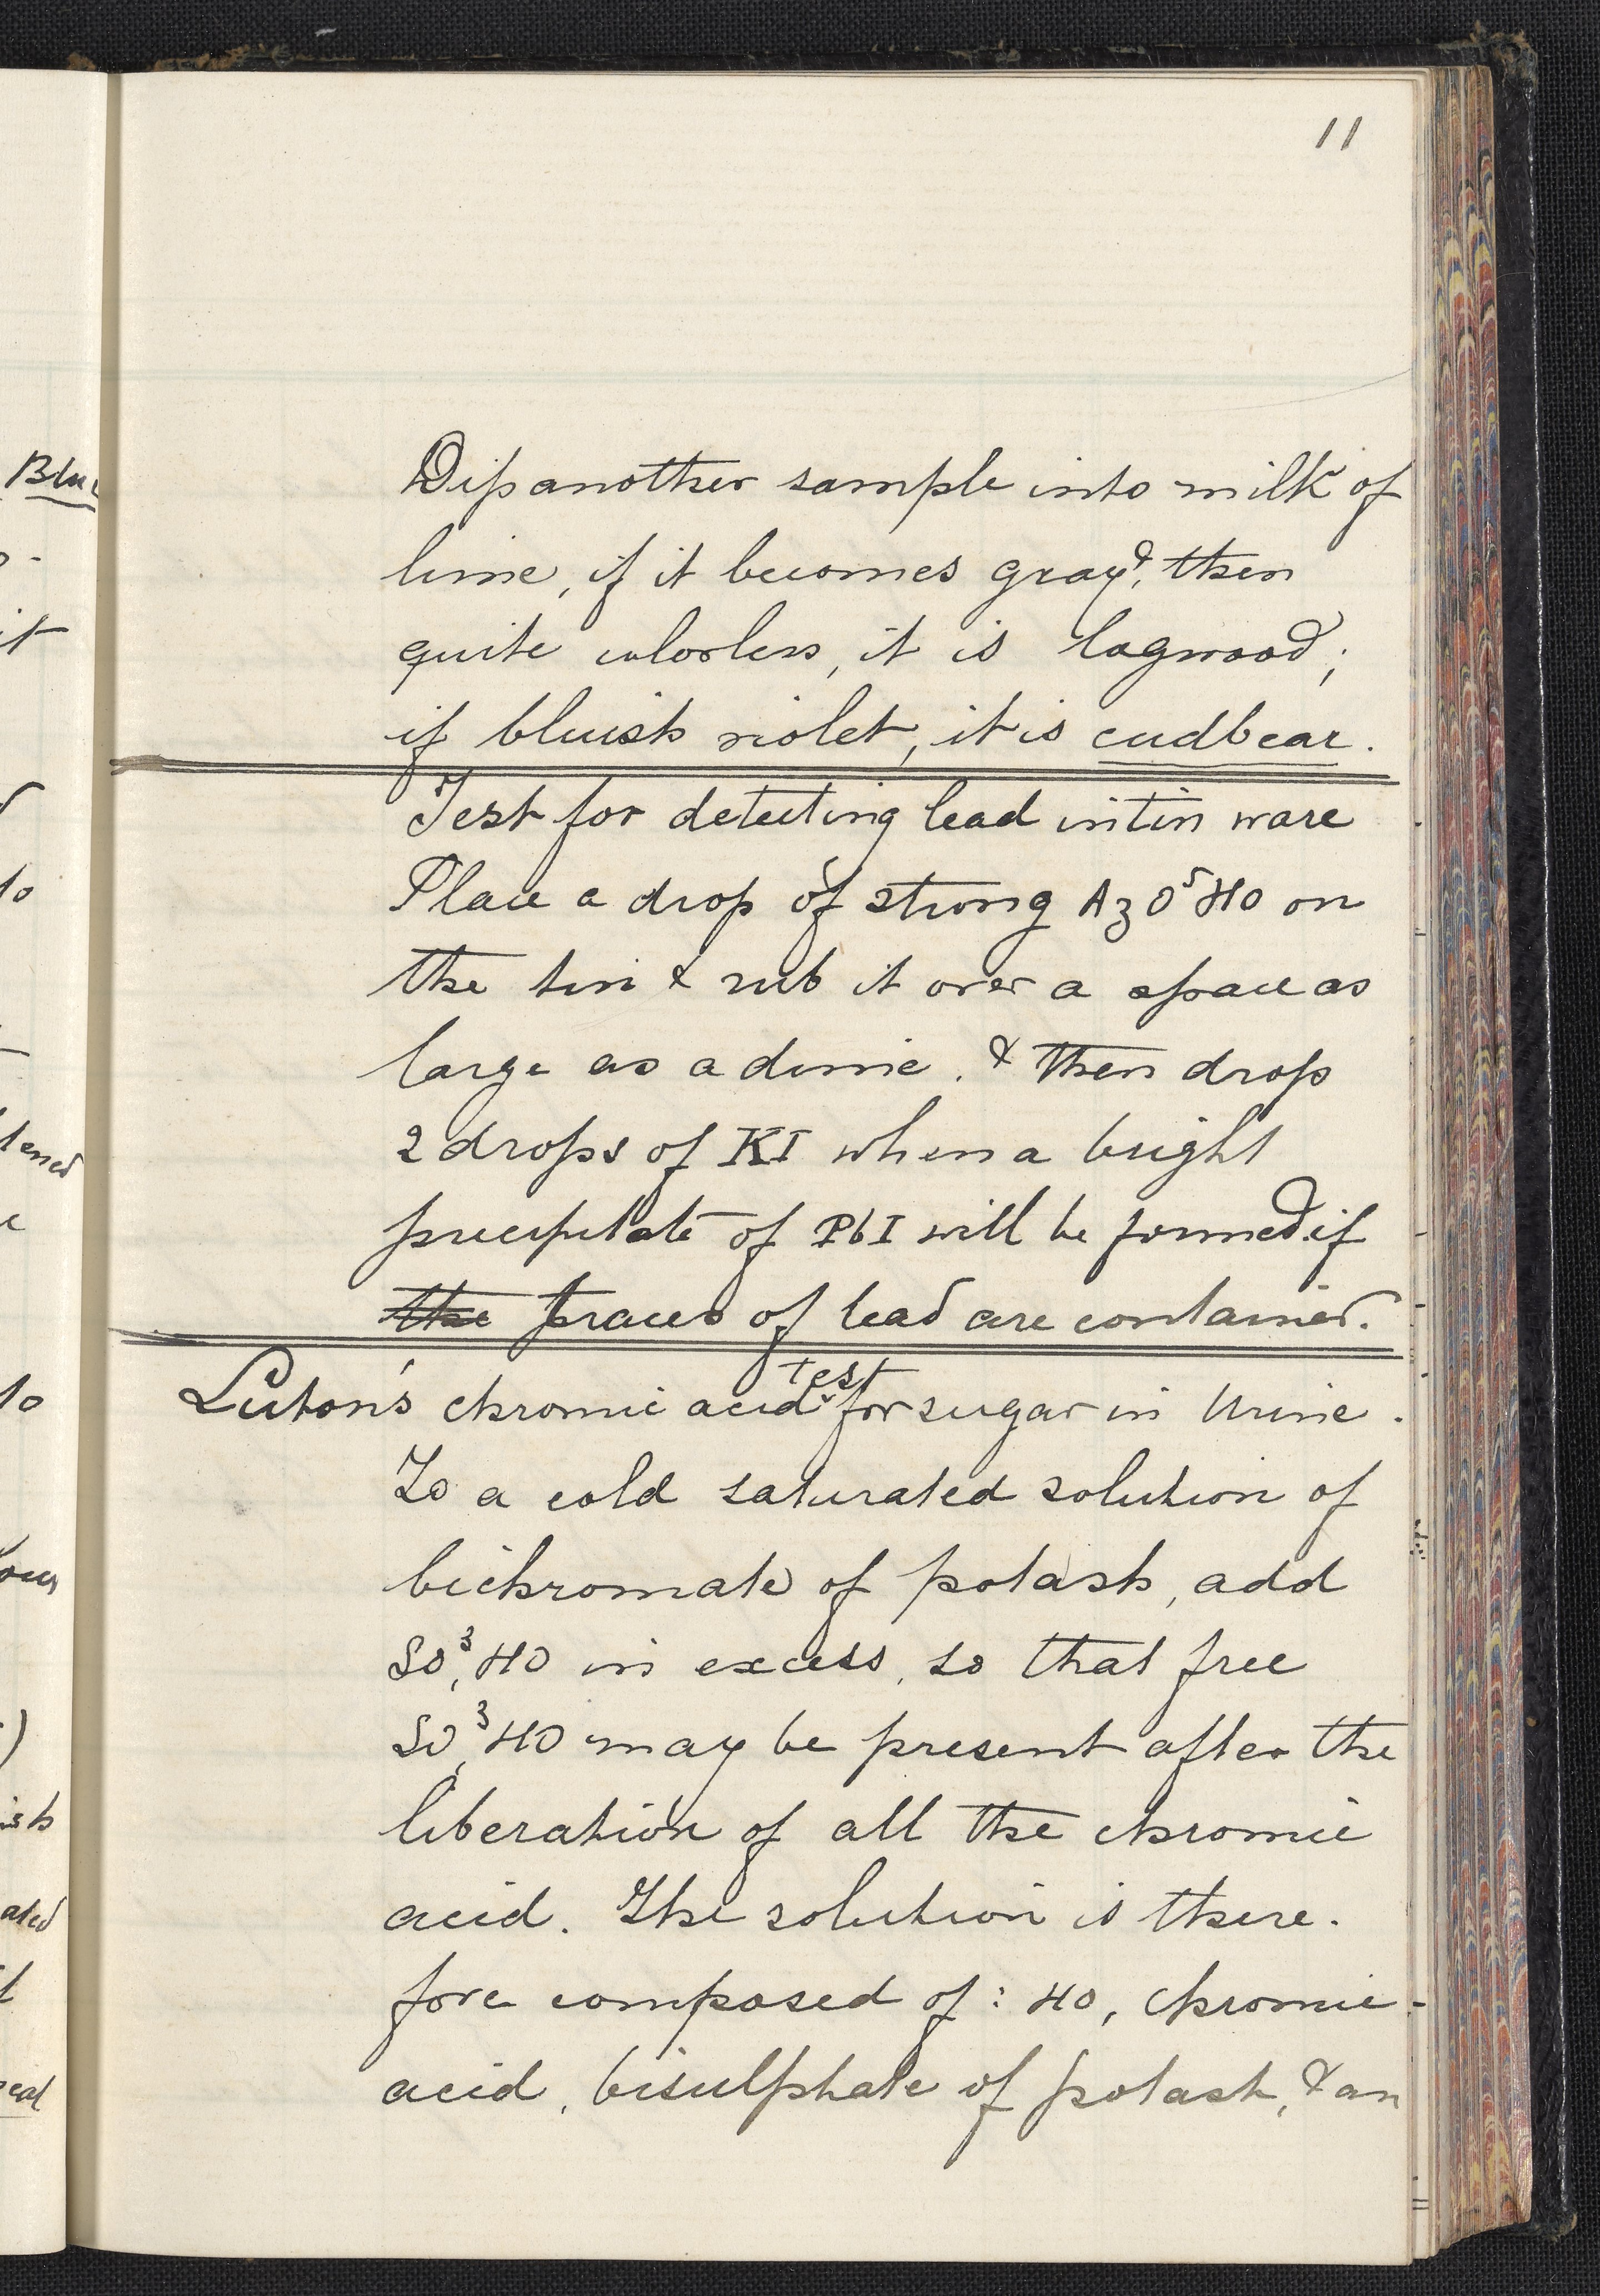 11
Blu
Dip another sample into milk of
lime, if it becomes gray, & then
quite colorless, it is logwood;
if bluish violet, it is cudbear.
Test for detecting lead in tin ware
Place a drop of strong AzO⁵HO on
the tin & rub it over a space as
large as a dime. & then drop
2 drops of KI when a bright
precipitate of PbI will be formed if
the traces of lead are contained.
Luton's chromic acid test for sugar in Urine.
To a cold saturated solution of
bichromate of potash, add
SO³,HO in excess, so that free
SO³,HO may be present after the
liberation of all the chromic
acid. The solution is there-
fore composed of: HO, chromic-
acid, bisulphate of potash, & an